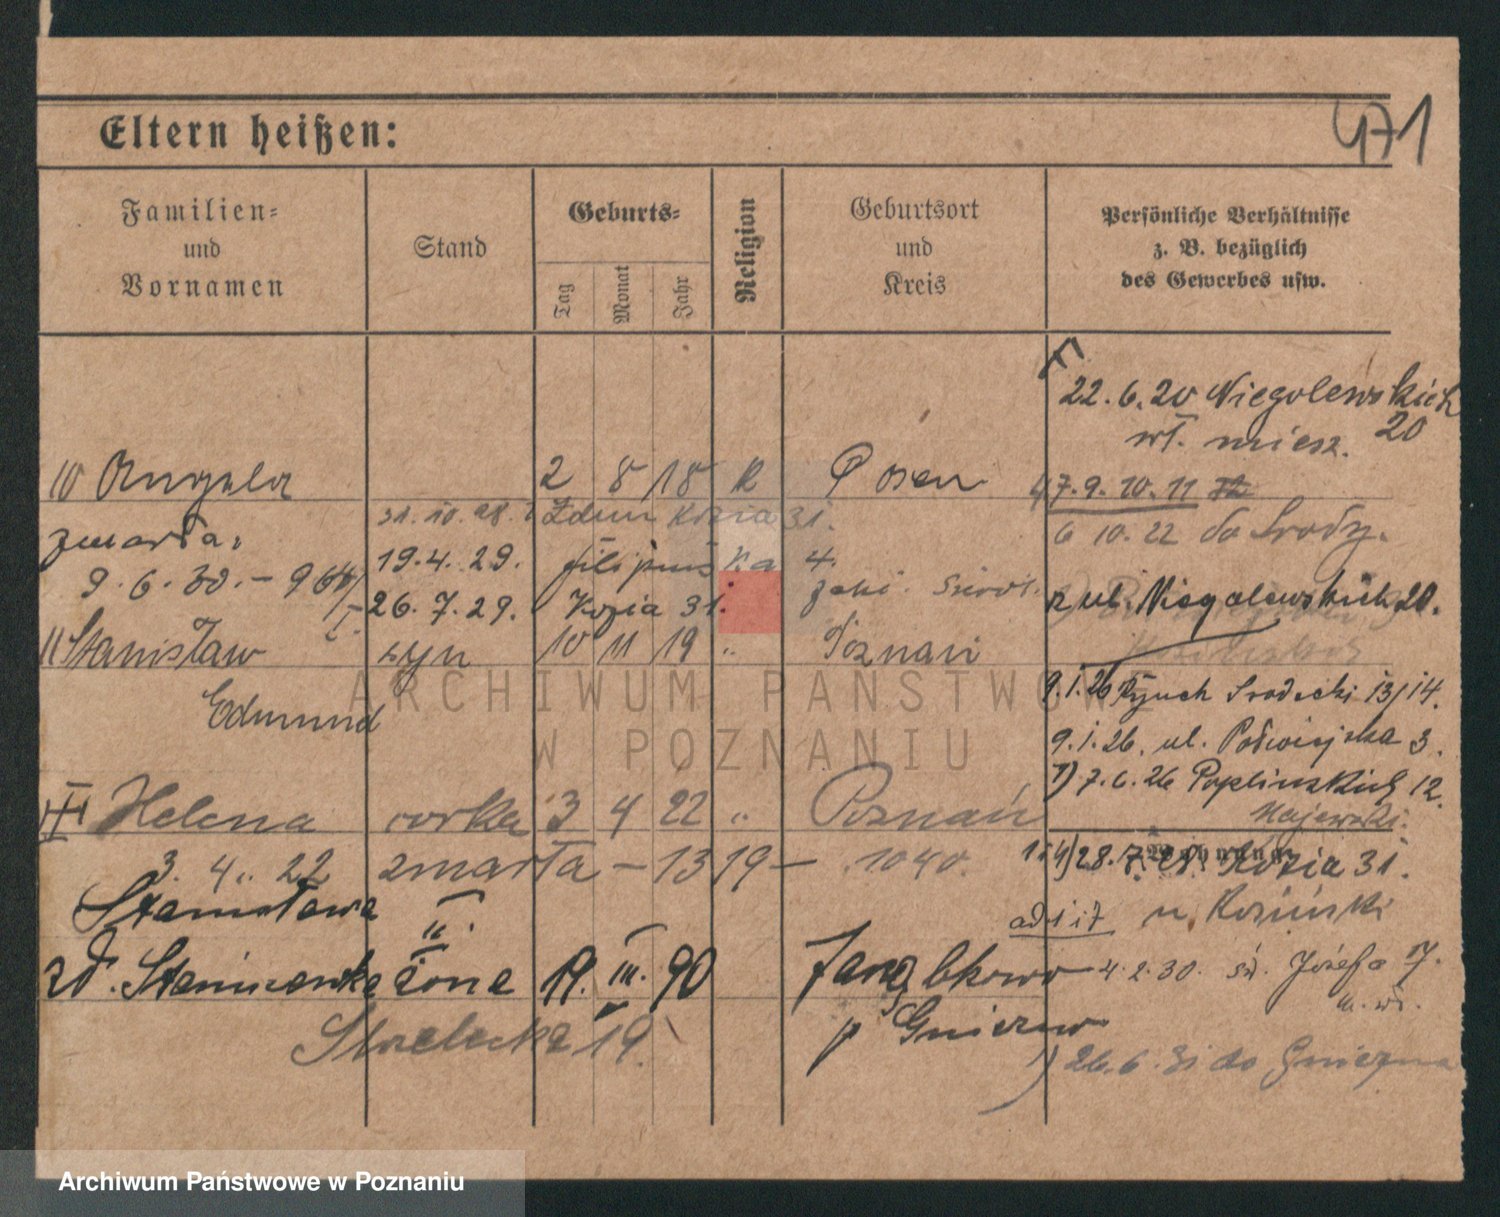 471
Eltern heißen:
Familien-
und
Vornamen
Stand
Geburts-
Tag
Monat
Jahr
Religion
Geburtsort
und
Kreis
Persönliche Verhältnisse
z. B. bezüglich
des Gewerbes usw.
22. 6. 20 Niegolewskich
20
wł. miesz.
10 Angela 2 8 18 K Posen
7. 9. 10. 11
31. 10. 28. Kozia 31.
6 10. 22 do Środy.
zmarła.
19. 4. 29. 4.
9. 6. 30. –
26. 7. 29. Kozia 31.
ul. Niegolewskich 20.
11 Stanisław syn 10 11 19 " Poznań
Edmund
9. 1. 26 Rynek Śródecki 13/14.
9. 1. 26. ul. Półwiejska 3.
7. 6. 26 Poplińskich 12.
Majewski.
III Helena córka 3 4 22 " Poznań
3. 4. 22 zmarła – 1319 – 1040.
28. 7. Kozia 31.
Stanisława
ad 1 i 7 u. Kosiński
żona 19. III. 90
4. 2. 30. św. Józefa 7.
Strzelecka 19.
p Gniezno
26. 6. 31 do Gniezna
ARCHIWUM PAŃSTWOWE
W POZNANIU
Archiwum Państwowe w Poznaniu